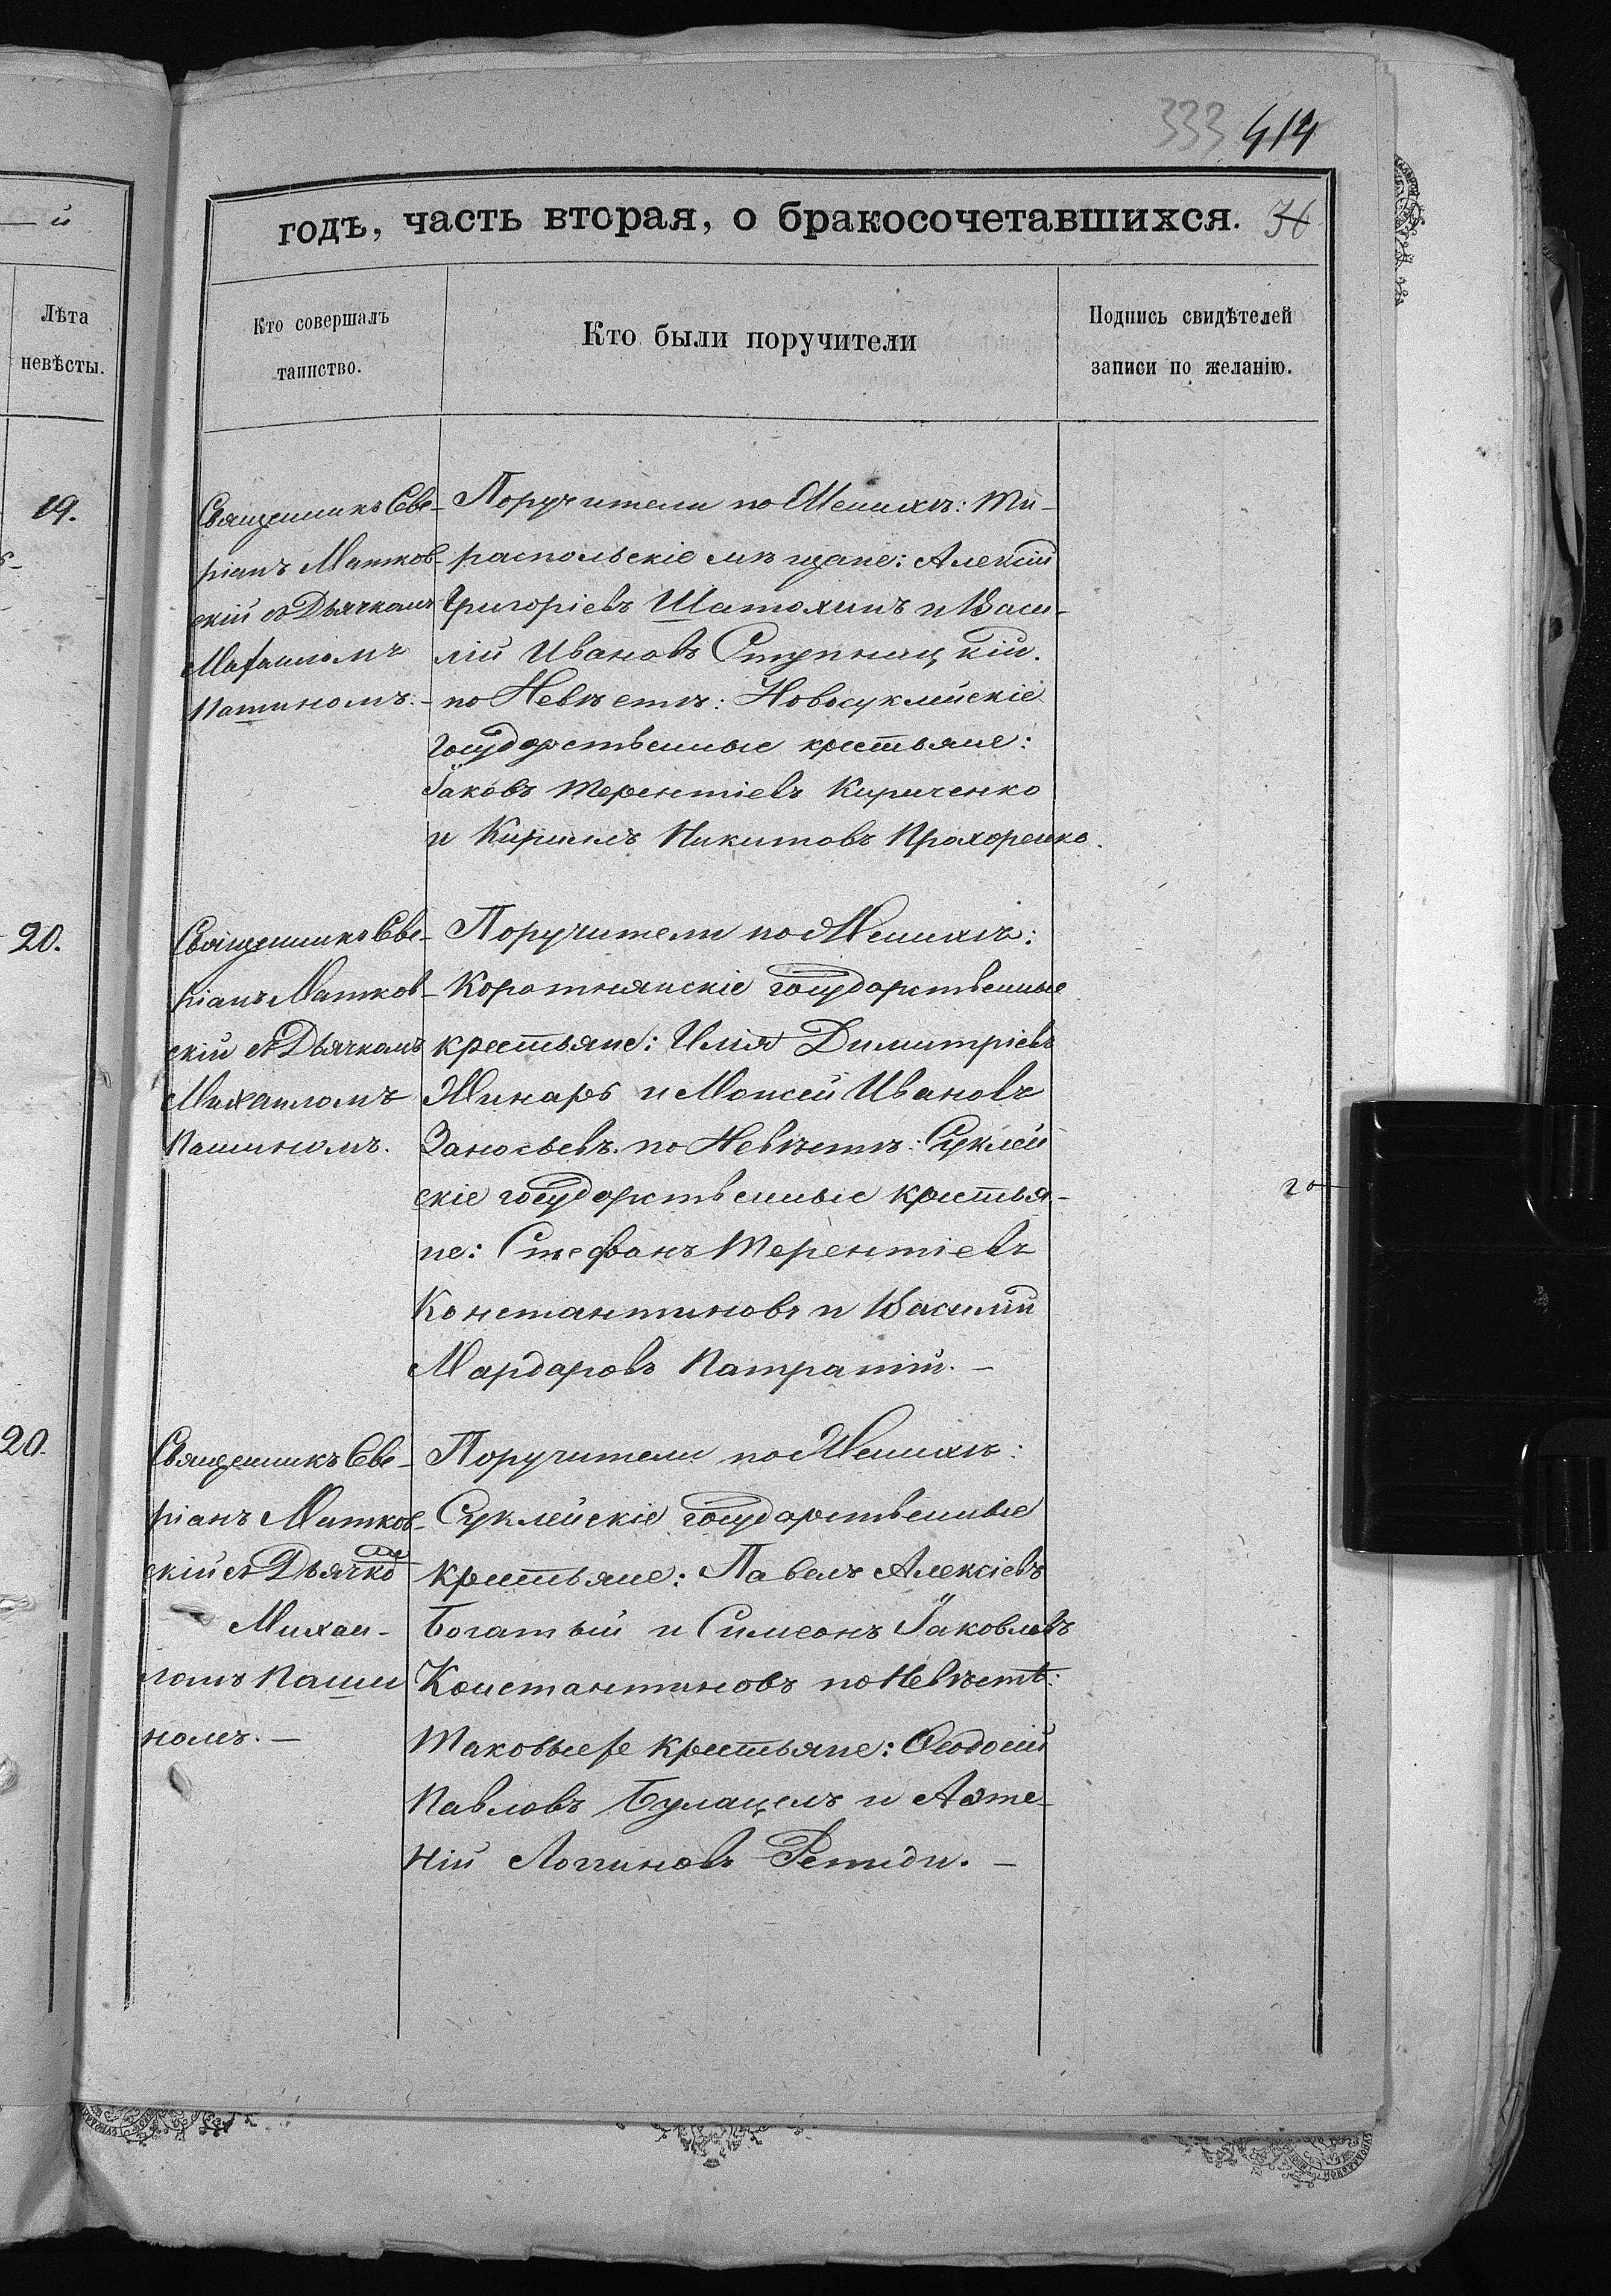 333 414
годъ, часть вторая, о бракосочетавшихся.
й
Лѣта
невѣсты.
Кто совершалъ
таинство.
Кто были поручители
Подпись свидѣтелей
записи по желанію.
19.
Священникъ Све-
ріанъ Матков-
скій съ Дьячкомъ
Пашиномъ.-
Поручители по Женихѣ: Ти-
распольскіе мѣщане: Алексій
Григоріевъ Шатохинъ и Васи-
лій Ивановъ Ступницкій.
по Невѣстѣ: Новосуклейскіе
Государственные крестьяне:
Іаковъ Терентіевъ Кириченко
и Кириллъ Никитовъ Прохоренко.
20.
Священникъ Све-
ріанъ Матков-
скій съ Дьячкомъ
Михаиломъ
Пашиномъ.
Поручители по Женихѣ:
Коротнянскіе государственные
крестьяне: Илія Димитріевъ
Жинарь и Моисей Ивановъ
Заносьевъ. по Невѣстѣ: Суклей
скіе государственные крестья-
не: Стефанъ Терентіевъ
Константиновъ и Василій
Мардаровъ Патратій. -
20.
Священникъ Све-
ріанъ Матков-
скій съ Дьячко
Михаи-
ломъ Паши
номъ. -
Поручители по Женихѣ:
Суклейскіе государственные
крестьяне: Павелъ Алексіевъ
Богатый и Симеонъ Іаковлевъ
Константиновъ по Невѣстѣ:
Таковые же крестьяне: Ѳеодосій
Павловъ Булацелъ и
ній Логгиновъ
20